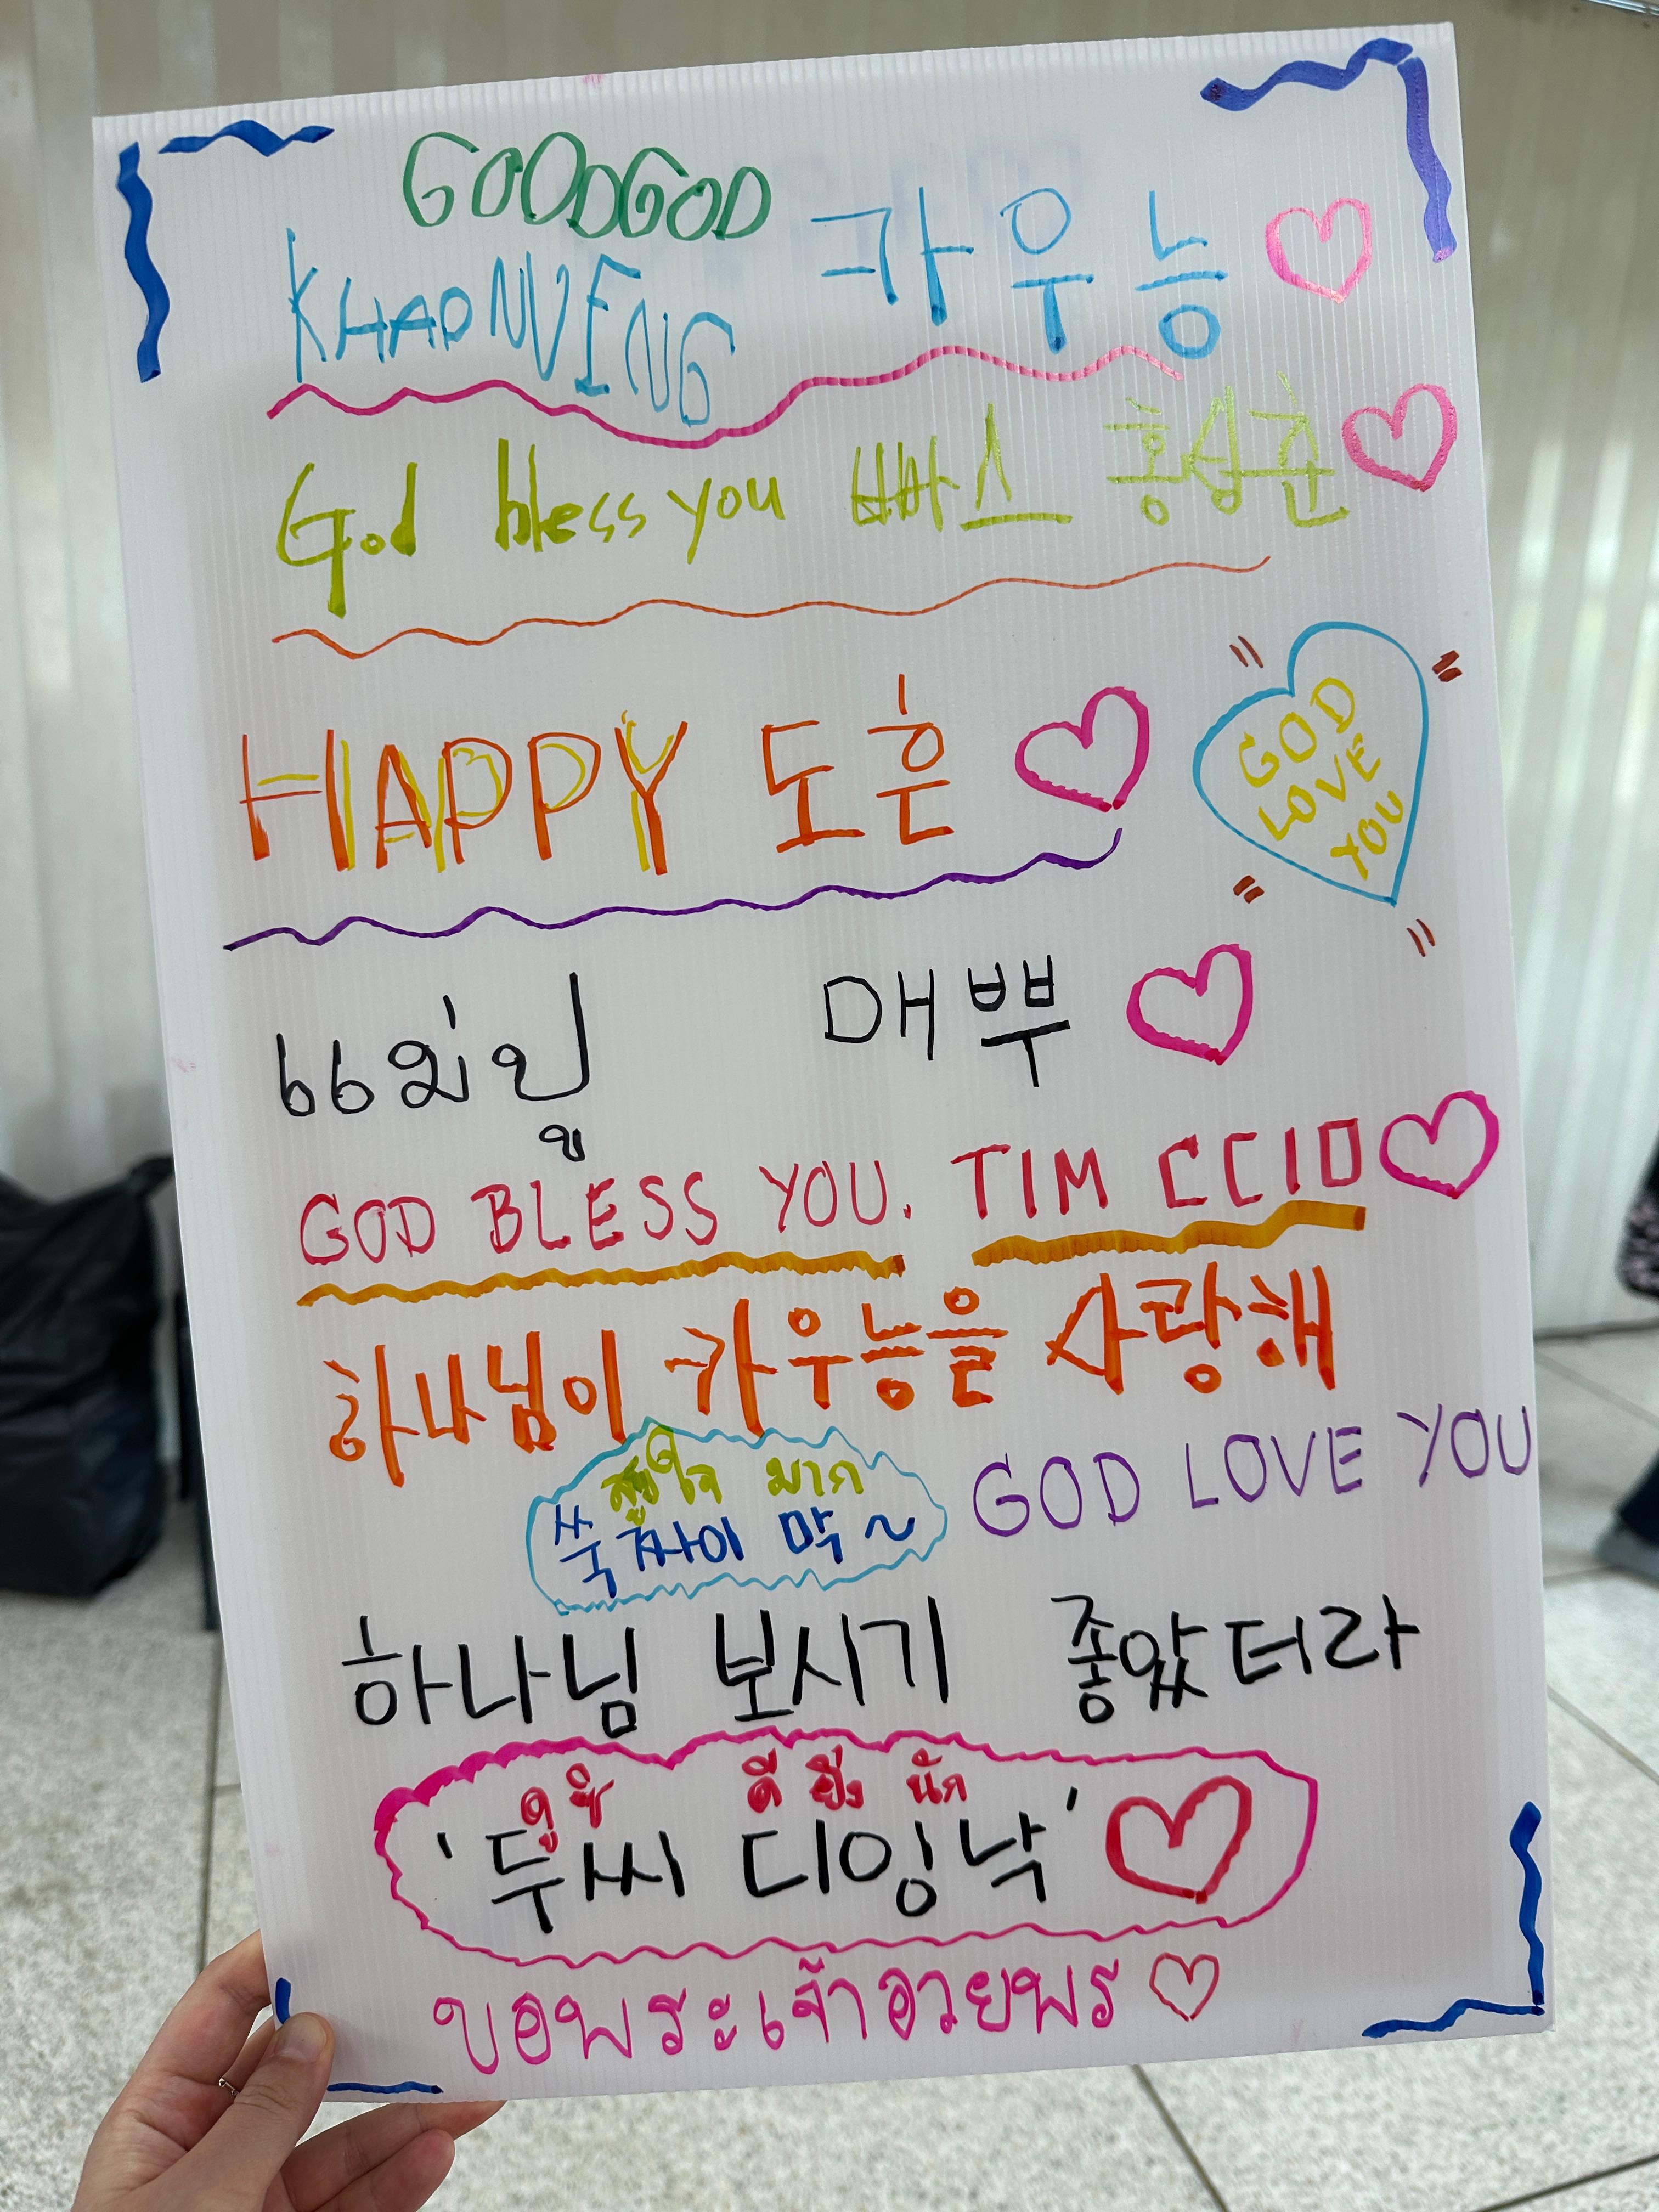 GOODGOD
KHAONVENG 카우능
God bless you 빠스 홍성준
HAPPY 도흔
GOD
LOVE
YOU
แม่ปู 매뿌
GOD BLESS YOU. TIM CCIO
하나님이 카우능을 사랑해
สุขใจ มาก
쑥짜이 막~
GOD LOVE YOU
하나님 보시기 좋았더라
ดูซิ ดี ยิ่ง นัก
'두씨 디잉낙'
ขอพระเจ้าอวยพร